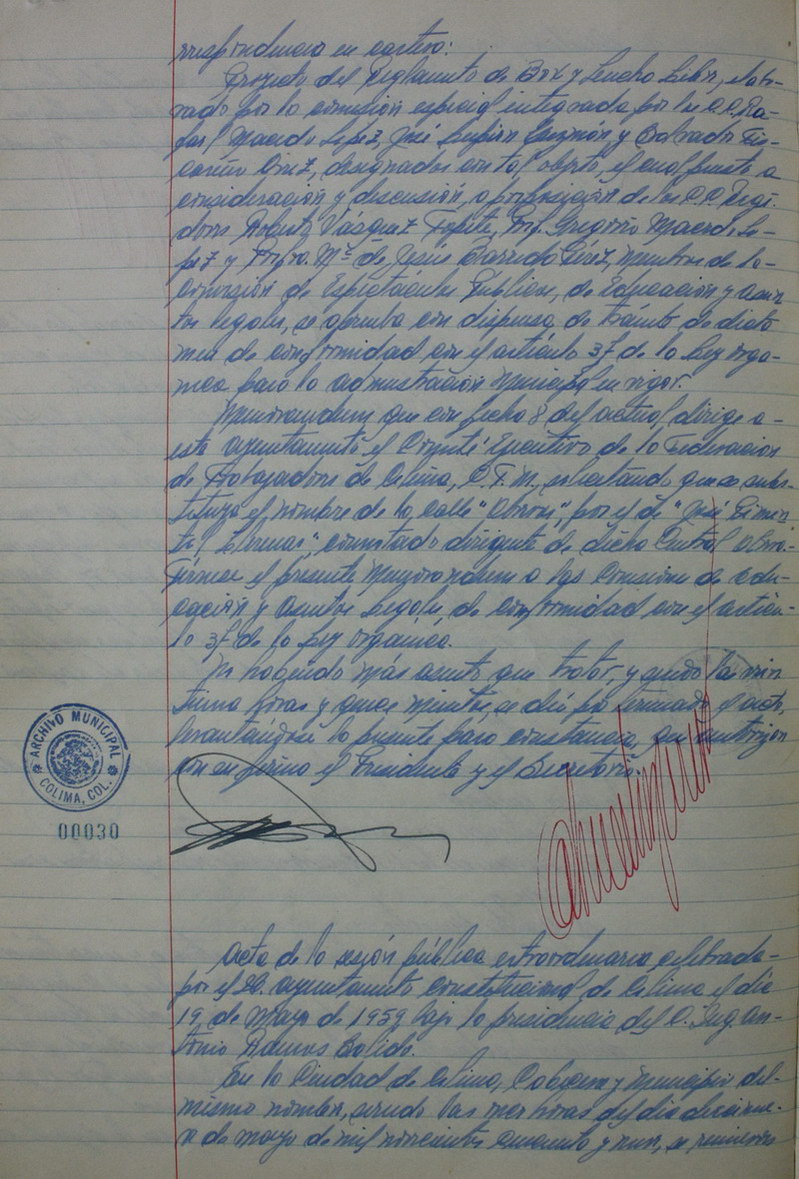 rrespondencia en cartera:
Proyecto del Reglamento de Box y Lucha Libre, elabo-
rado por la comisión especial integrada por los C.C. Ra-
fael Macedo López, José Guzmán y Salvador
Cruz, designados con tal objeto, el cual puesto a
consideración y discusión, a proposición de los C.C. Regi-
dores Roberto Vásquez Tapete, Prof. Gregorio Macedo Ló-
pez y Profra. Ma. de Jesús Pérez, miembros de la
Comisión de Espectáculos Públicos, de Educación y asun-
tos legales, se aprueba con dispensa de trámite de dicta-
men de conformidad con el artículo 37 de la Ley orgá-
nica para la administración Municipal en vigor.
Memorandum que con fecha 8 del actual, dirige a
este ayuntamiento el Comité Ejecutivo de la Federación
de Trabajadores de Colima, C.T.M., solicitando que se subs-
tituya el nombre de la calle "Obregón", por el de "José Pimen-
tel Llerenas", connotado dirigente de dicha Central obrera.
Túrnese el presente Memorandum a las Comisiones de Edu-
cación y Asuntos Legales, de conformidad con el artícu-
lo 37 de la Ley orgánica.
No habiendo más asunto que tratar, y siendo las vein-
tiuna horas y quince minutos, se dió por terminado el acto,
levantándose la presente para constancia, que autorizan
con su firma el Presidente y el Secretario.
ARCHIVO MUNICIPAL
COLIMA, COL.
00030
Acta de la sesión pública extraordinaria celebrada
por el H. ayuntamiento Constitucional de Colima el día
19 de Mayo de 1959 bajo la presidencia del C. Ing. An-
tonio
En la Ciudad de Colima, Cabecera y Municipio del
mismo nombre, siendo las horas del día diecinue-
ve de mayo de mil novecientos cincuenta y nueve, se reunieron